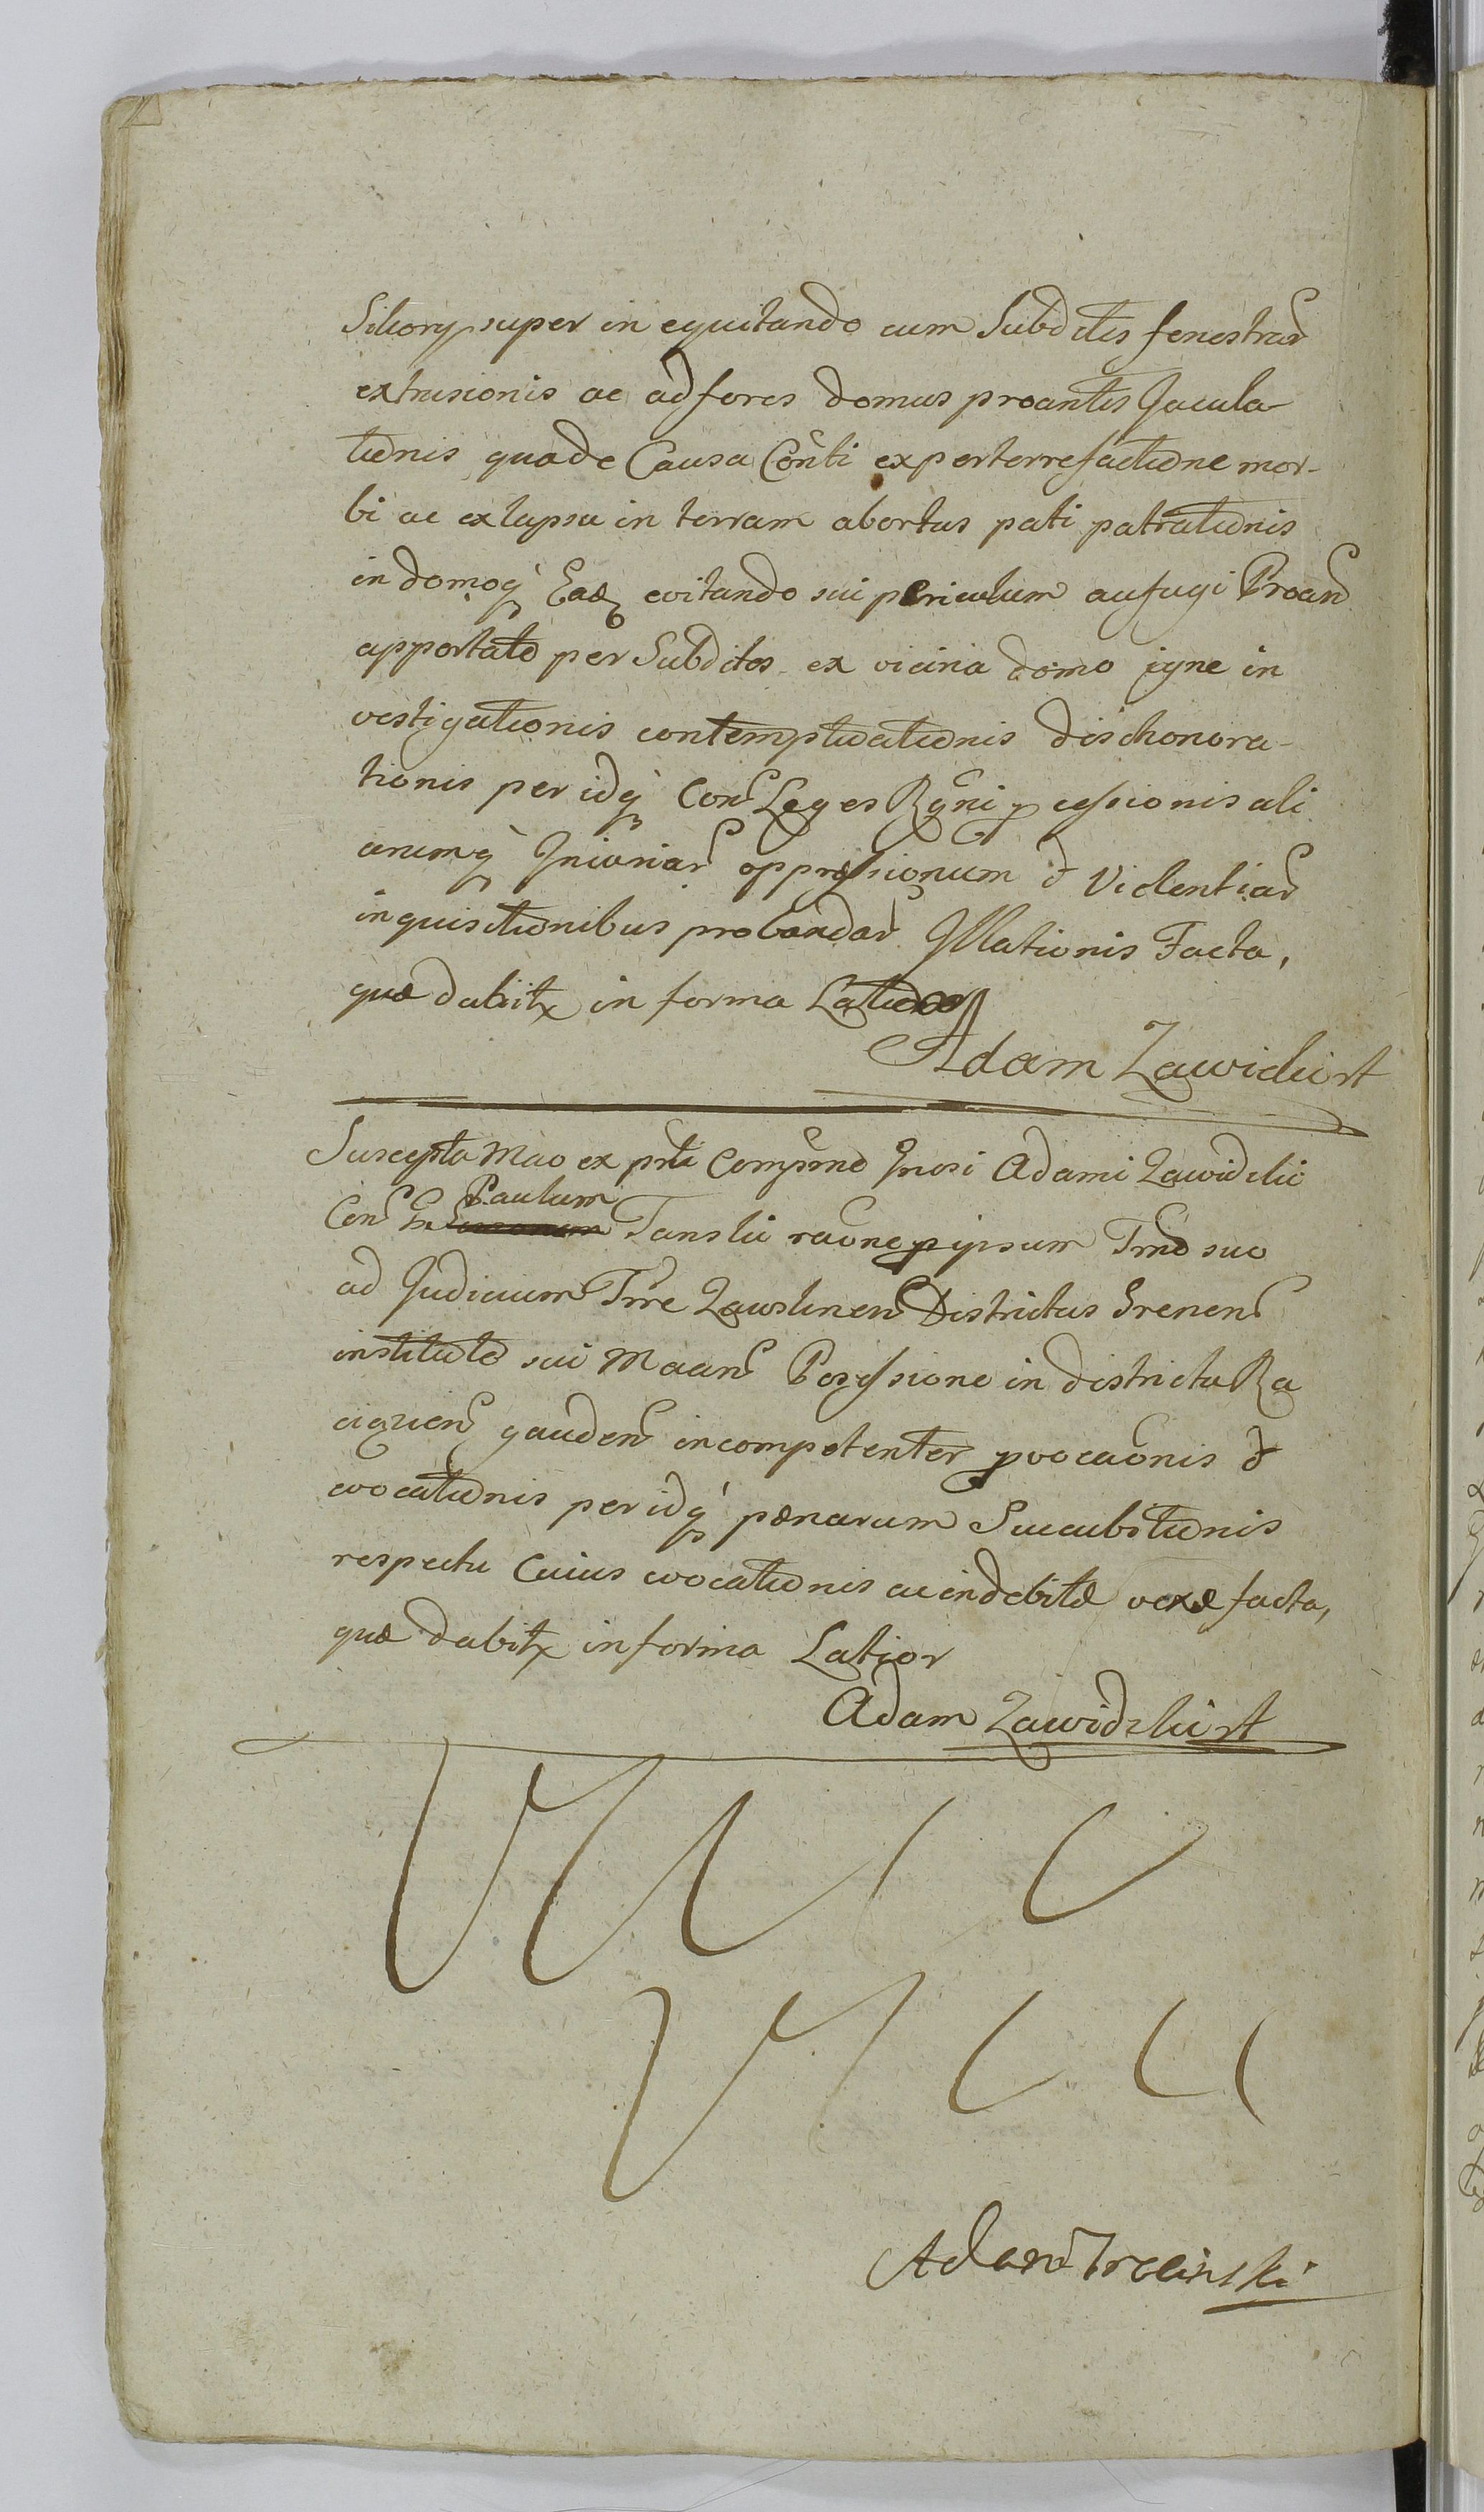 Sikory super in equitando cum Subditis fenestrar
extrusionis ac ad fores domus proantis Jacula
tionis qua de Causa Conti experterrefactione mor-
bi ac ex lapsu in terram abortus pati patrationis
in domoq Ead evitando sui periculum aufugi Proan
apportato per Subditos ex vicina domo igne in
vestigationis contemptuationis dischonora-
tionis per idq Con Leges Rgni p cessionis ali
arumq Iniuriar oppressionum & Violentiar
inquisitionibus probandar Illationis Facta,
quæ dabitr in forma Latiori
Adam Zawidzki st
Suscepta Mao ex prti Compnmo Gnosi Adami Zawidzkii
Con Paulum Tanskii raone p ipsum Trno suo
ad Judicium Trre Zawskrnen Districtus Srenen
instituto sui Maan Possessione in districtu Ra
ciązien gauden incompetenter pvocaonis &
evocationis per idq pænarum Succubitionis
respectu Cuius evocationis ac indebitæ vexæ facta,
quæ dabitr in forma Latior
Adam Zawidzki st
Adam